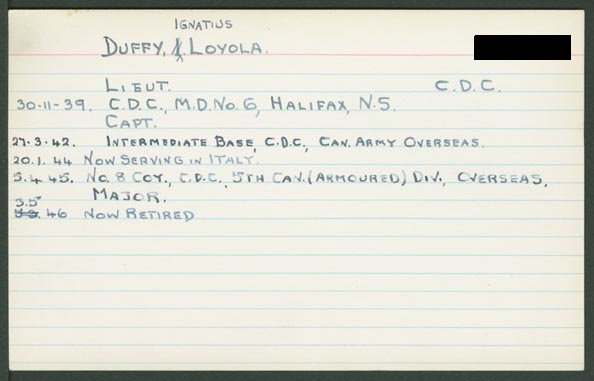 IGNATIUS
DUFFY, LOYOLA.
LIEUT. C.D.C.
30-11-39. C.D.C., M.D. No. 6, HALIFAX, N.S.
CAPT.
27.3.42. INTERMEDIATE BASE, C.D.C., CAN. ARMY OVERSEAS.
20.1.44 NOW SERVING IN ITALY.
5.4.45. No. 8 COY., C.D.C., 5TH CAN. (ARMOURED) DIV., OVERSEAS,
MAJOR.
3.5
.46 NOW RETIRED